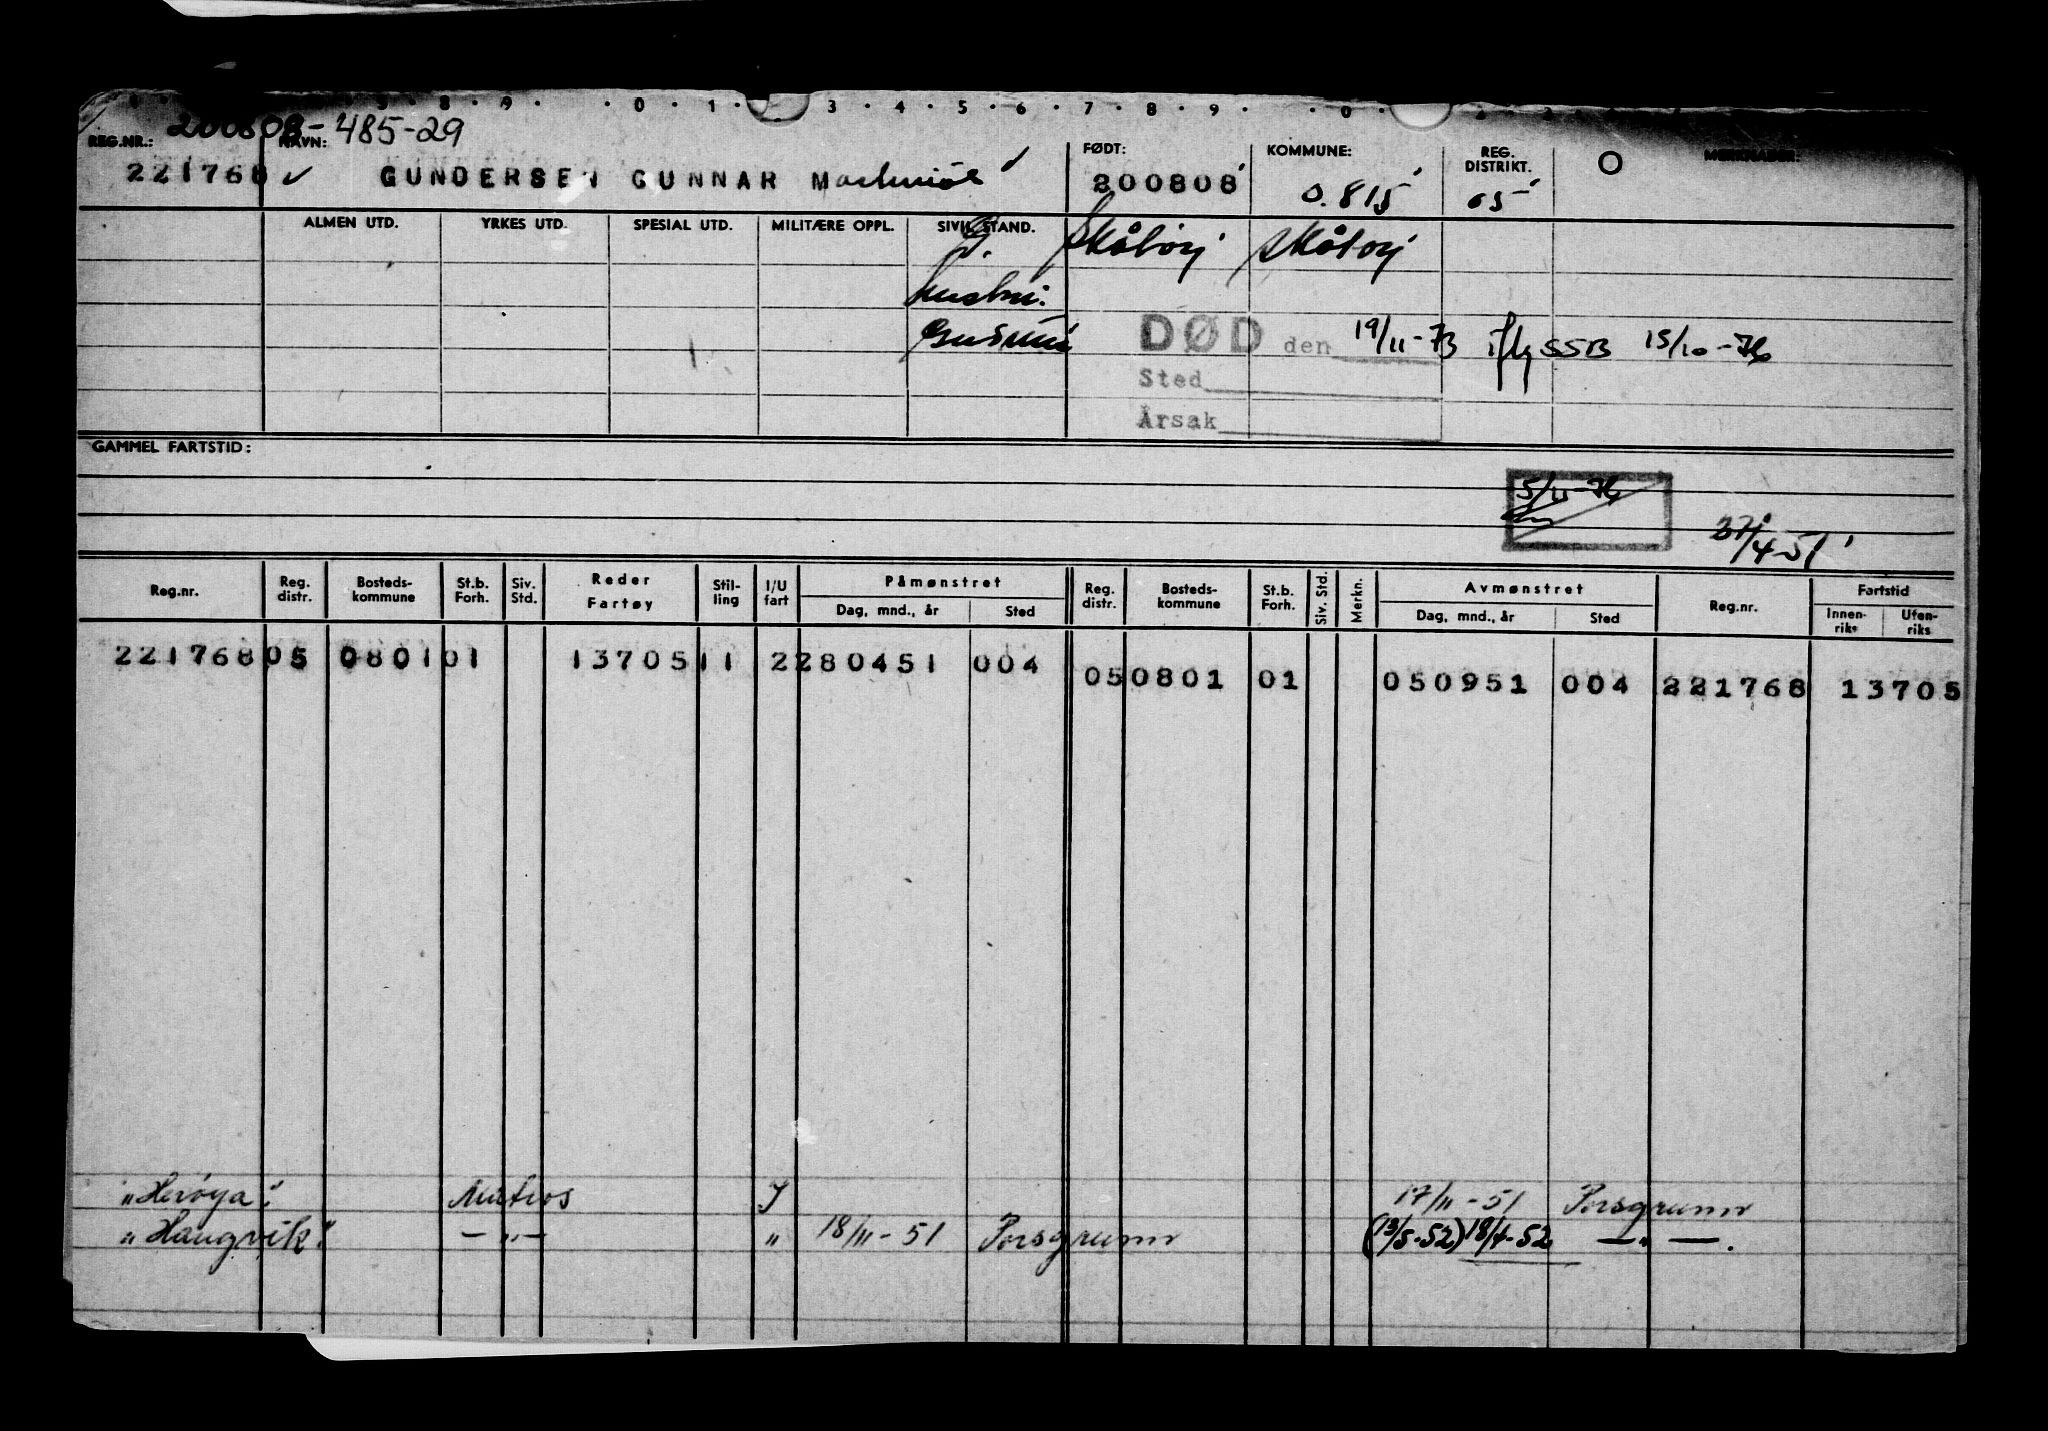 8 · 9 · · 0 · 1 · 3 · 4 · 5 · 6 · 7 · 8 · 9 · · 0 ·
200808-485-29
REG.NR.: NAVN: FØDT: KOMMUNE: REG. DISTRIKT. MERKNADER:
221768 ✓ GUNDERSEN GUNNAR 200808 0.815 05
ALMEN UTD. YRKES UTD. SPESIAL UTD. MILITÆRE OPPL. SIVILSTAND.
g. Skåtøy Skåtøy
hustru.
DØD den 19/11-73 iflg SSB 15/10-76
Sted
Årsak
GAMMEL FARTSTID:
5/11-76
27/4-51
Reg.nr. Reg. distr. Bosteds-kommune St.b. Forh. Siv. Std. Reder Fartøy Stil-ling I/U fart Påmønstret Dag, mnd., år Sted Reg. distr. Bosteds-kommune St.b. Forh. Siv. Std. Merkn. Avmønstret Dag, mnd., år Sted Reg.nr. Fartstid Innen-riks Uten-riks
221768 05 0801 01 13705 11 2 280451 004 05 0801 01 050951 004 221768 13705
"Herøya" Matros I 17/11-51 Porsgrunn
"Haugvik" — " — " 18/11-51 Porsgrunn (13/5-52) 18/4-52 — " —.